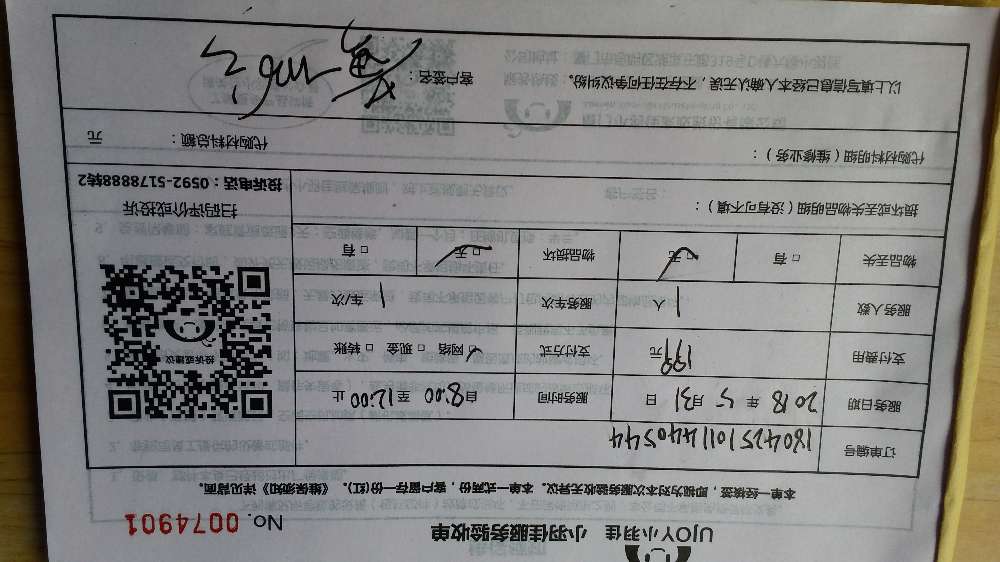 UJOY小羽佳 小羽佳服务验收单
No. 0074901
本单一经核签，即视为对本次服务验收无异议。本单一式两份，客户留存一份(红)。《维保须知》详见背面。
订单编号 1804251011440544
服务日期 2018年5月31日 服务时间 自8:00至12:00止
支付费用 199元 支付方式 ☑网络 □现金 □转账
服务人数 1人 服务车次 1车/次
物品丢失 □有 ☑无 物品损坏 ☑无 □有
投诉或建议
扫码评价或投诉
投诉电话：0592-5178888转2
损坏或丢失物品明细（没有可不填）：
代购材料明细（维修业务）： 代购材料总额： 元
以上填写信息已经本人确认无误，不存在任何争议纠纷。 客户签名：